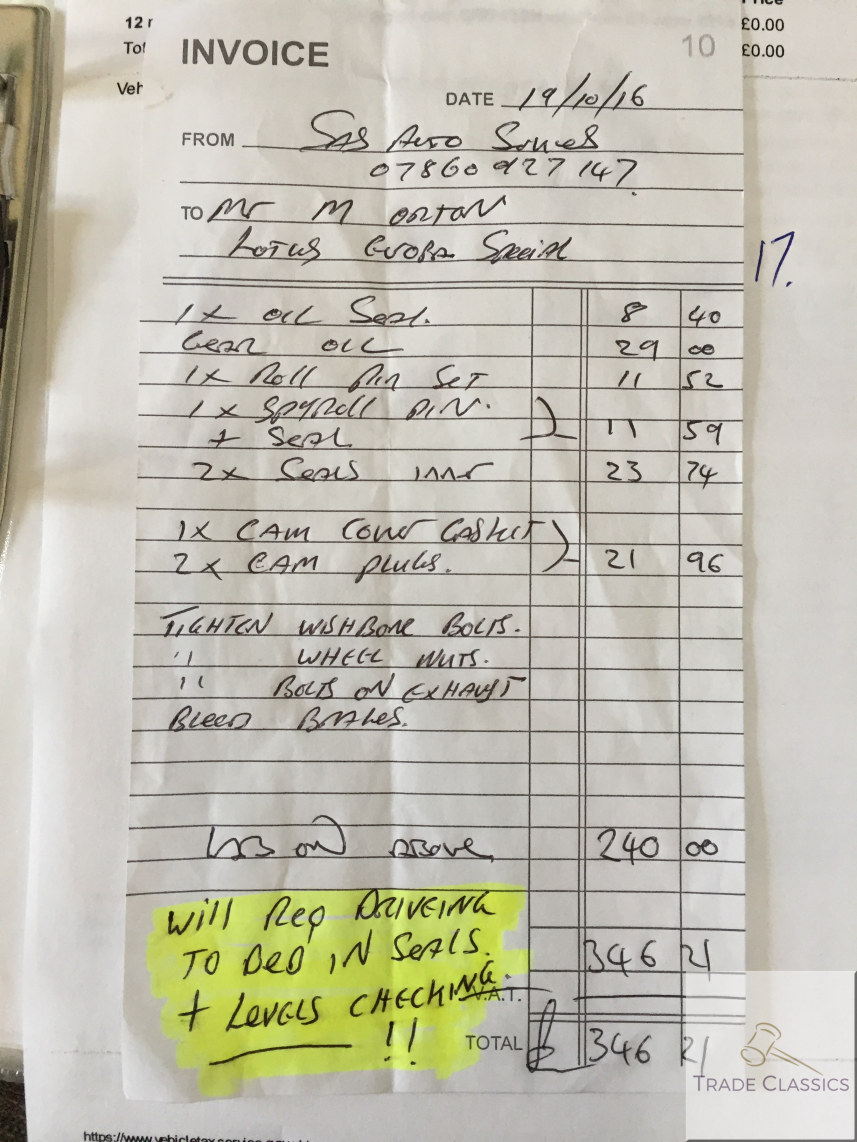 Price
12
£0.00
Tot
£0.00
Veh
INVOICE
10
DATE 19/10/16
FROM SAS Auto Services
07860 927 147
TO Mr M Orton
Lotus Europa Special
17.
1x Oil Seal. 8 40
Gear Oil 29 00
1x Roll Pin Set 11 52
1x Spyroll Pin.
+ Seal 11 59
2x Seals inner 23 74
1x CAM Cover Gasket
2x CAM Plugs. 21 96
TIGHTEN WISHBONE BOLTS.
" WHEEL NUTS.
" BOLTS ON EXHAUST
Bleed Brakes.
LAB on above 240 00
Will Req DRIVEING
TO BED IN SEALS.
346 21
+ LEVELS CHECKING.
V.A.T.
!!
TOTAL £ 346 21
TRADE CLASSICS